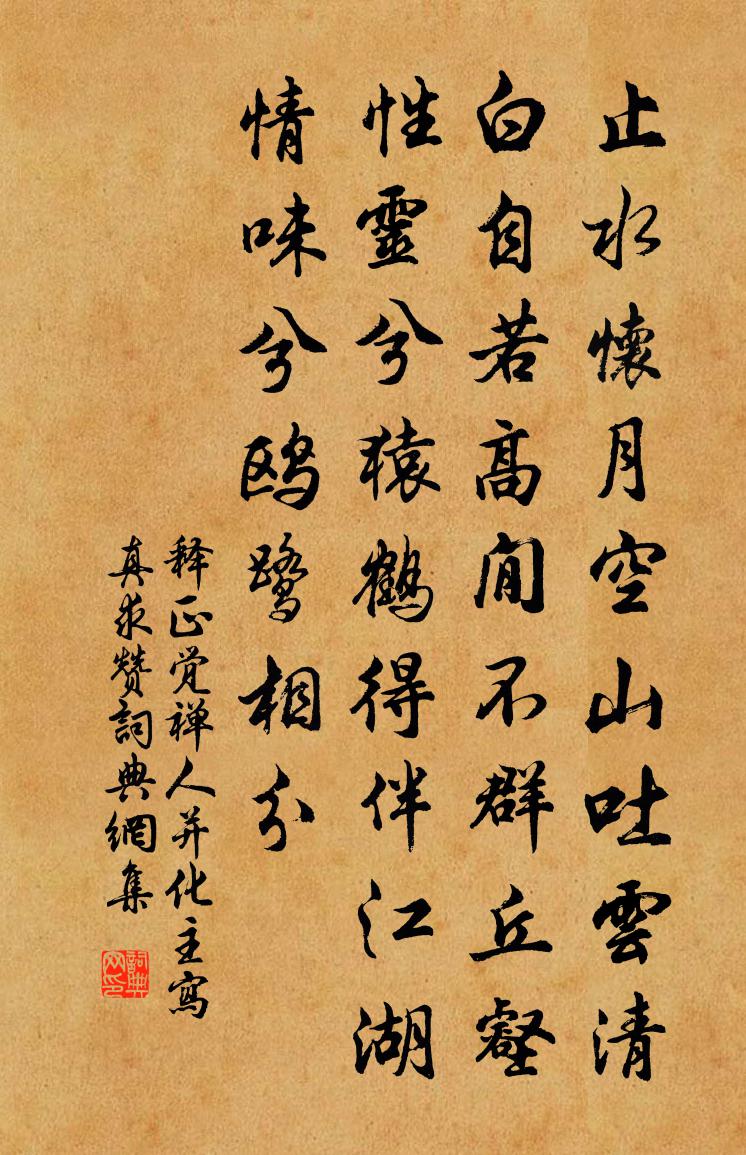 止水懷月空山吐雲清
白自若高閒不群丘壑
性靈兮猿鶴得伴江湖
情味兮鷗鷺相分
释正覺禅人并化主寫
真求赞詞典網集
詞典网印